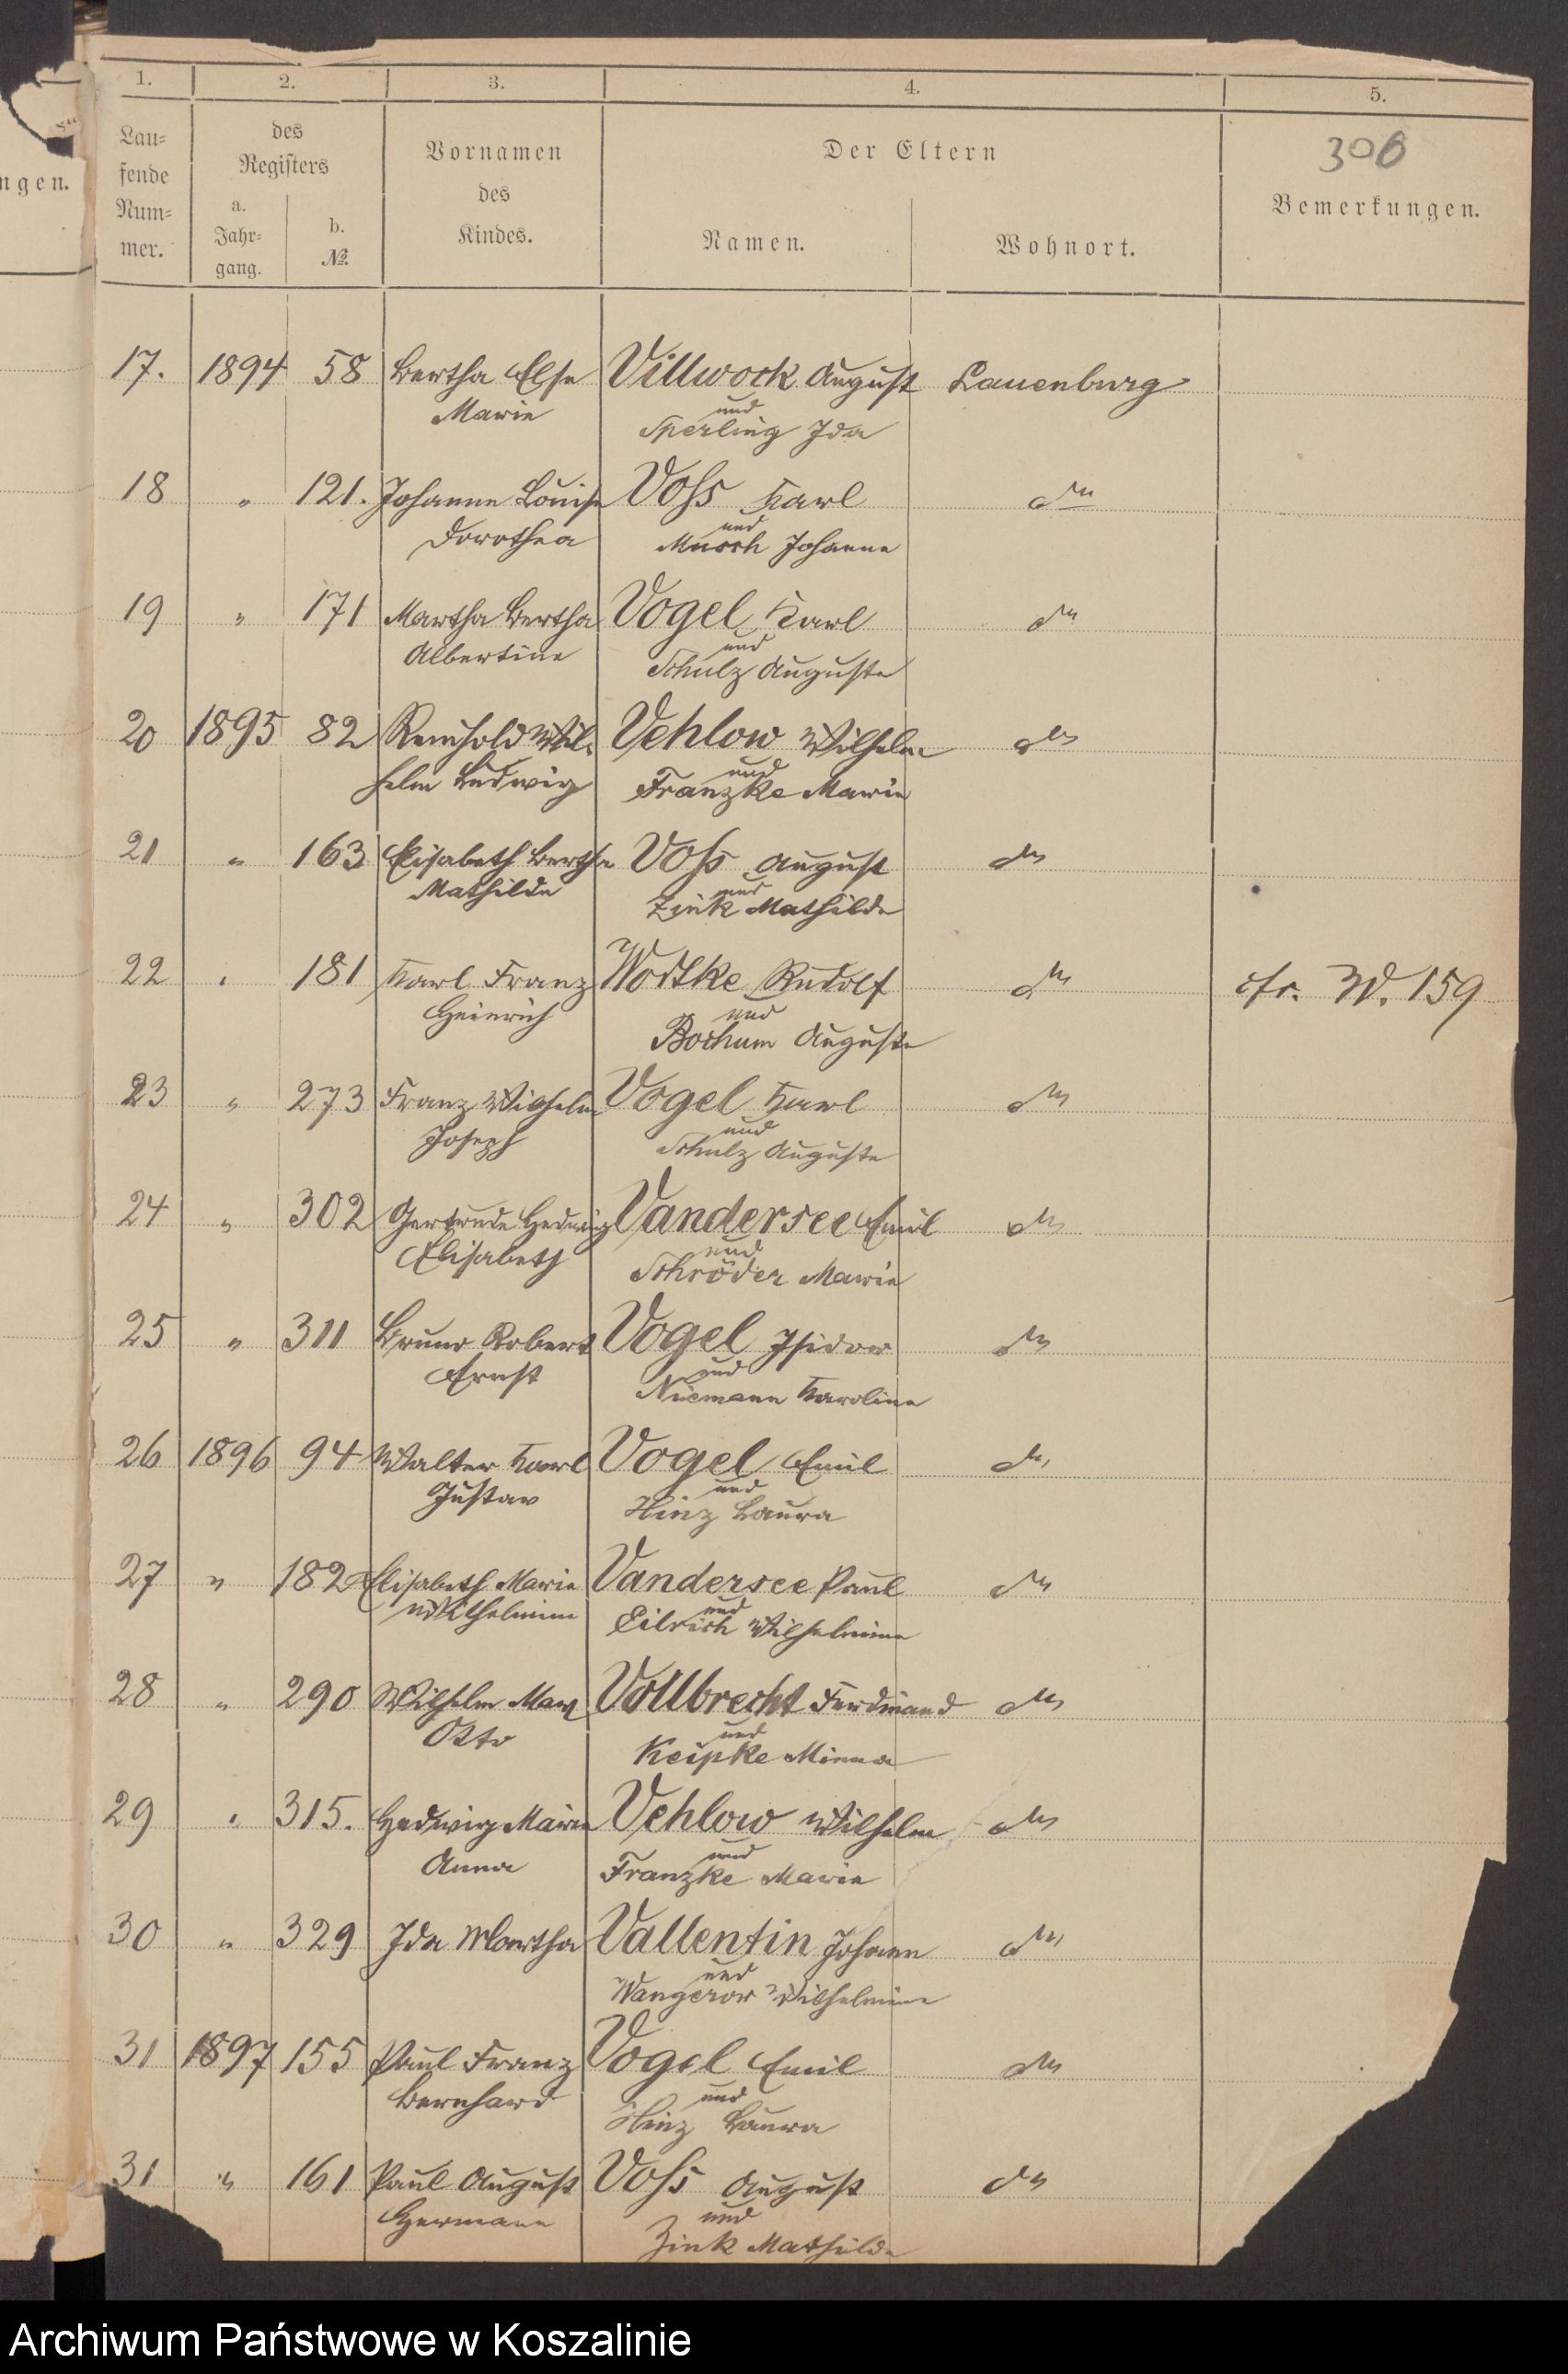 1. 2. 3. 4. 5.
ngen.
Lau=
fende
Num=
mer.
des
Registers
a.
Jahr=
gang.
b.
№.
Vornamen
des
Kindes.
Der Eltern
Namen.
Wohnort.
306
Bemerkungen.
17. 1894 58 Bertha Else Villwock August Lauenburg
Marie und
Sperling Ida
18 " 121. Johanne Louise Voss Karl do
Dorothea und
Johanne
19 " 171 Martha Bertha Vogel Karl do
Albertine und
Schulz Auguste
20 1895 82 Reinhold Wil= Vehlow Wilhelm do
helm Ludwig und
Franzke Marie
21 " 163 Elisabeth Bertha Voss August do
Mathilde und
Zink Mathilde
22 " 181 Karl Franz Wodtke Rudolf do cfr. W. 159
Heinrich und
Bochum Auguste
23 " 273 Franz Wilhelm Vogel Karl do
Joseph und
Schulz Auguste
24 " 302 Gertrude Hedwig Vandersee Emil do
Elisabeth und
Schröder Marie
25 " 311 Bruno Robert Vogel Isidor do
Ernst und
Niemann Karoline
26 1896 94 Walter Karl Vogel Emil do
Gustav und
Hinz Laura
27 " 182 Elisabeth Marie Vandersee Paul do
Wilhelmine und
Eilrich Wilhelmine
28 " 290 Wilhelm Max Vollbrecht Ferdinand do
Otto und
Keipke Minna
29 " 315. Hedwig Marie Vehlow Wilhelm do
Anna und
Franzke Marie
30 " 329 Ida Martha Vallentin Johann do
und
Wangerow Wilhelmine
31 1897 155 Paul Franz Vogel Emil do
Bernhard und
Hinz Laura
31 " 161 Paul August Voss August do
Hermann und
Zink Mathilde
Archiwum Państwowe w Koszalinie